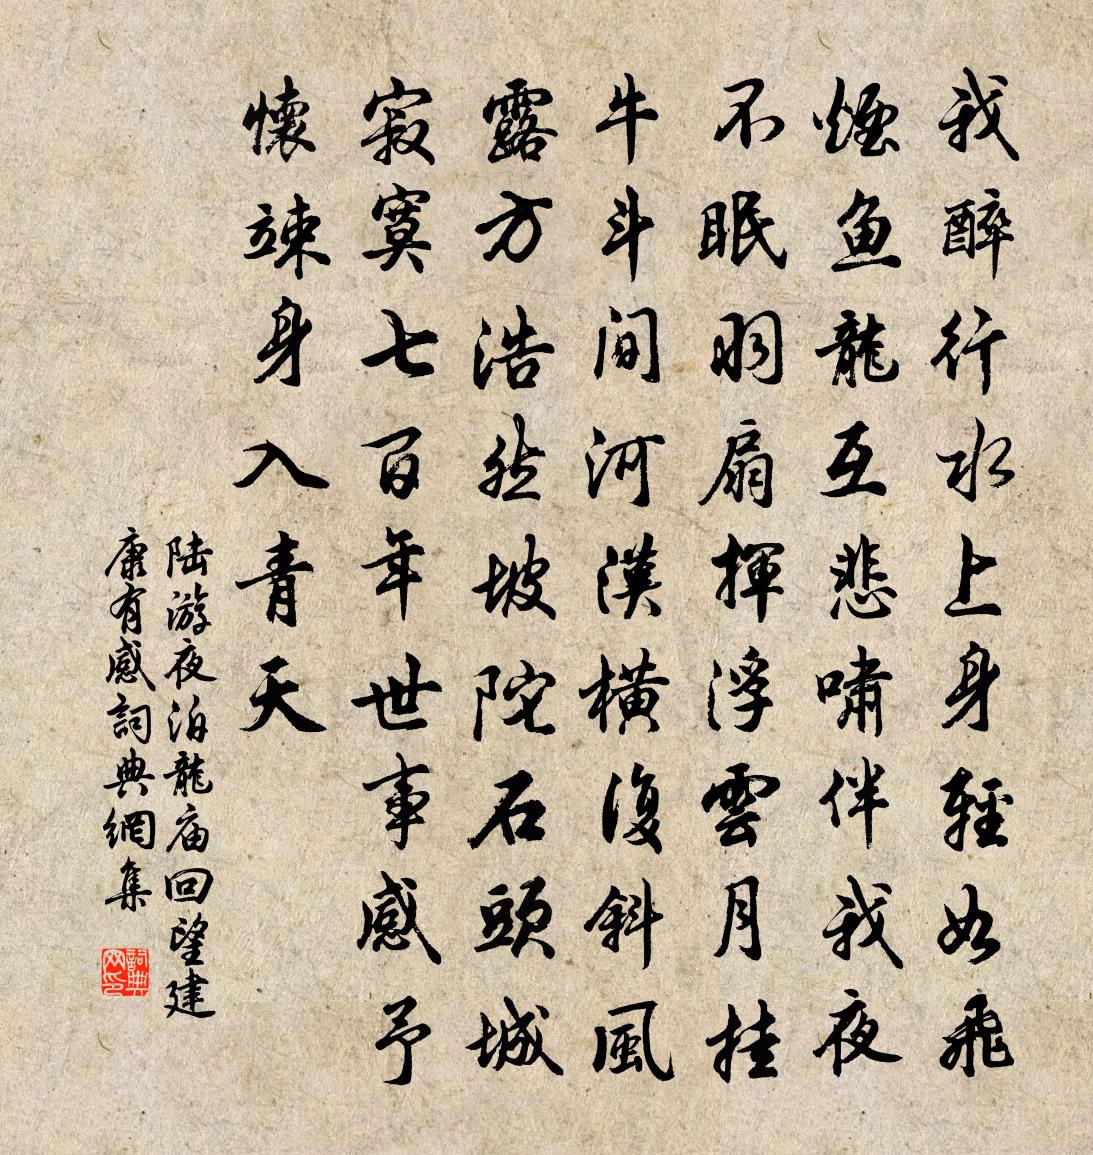 我醉行水上身輕如飛
煙魚龍互悲嘯伴我夜
不眠羽扇揮浮雲月挂
牛斗間河漢橫復斜風
露方浩然坡陀石頭城
寂寞七百年世事感予
懷竦身入青天
陆游夜泊龍庙回望建
康有感詞典網集
詞典网印